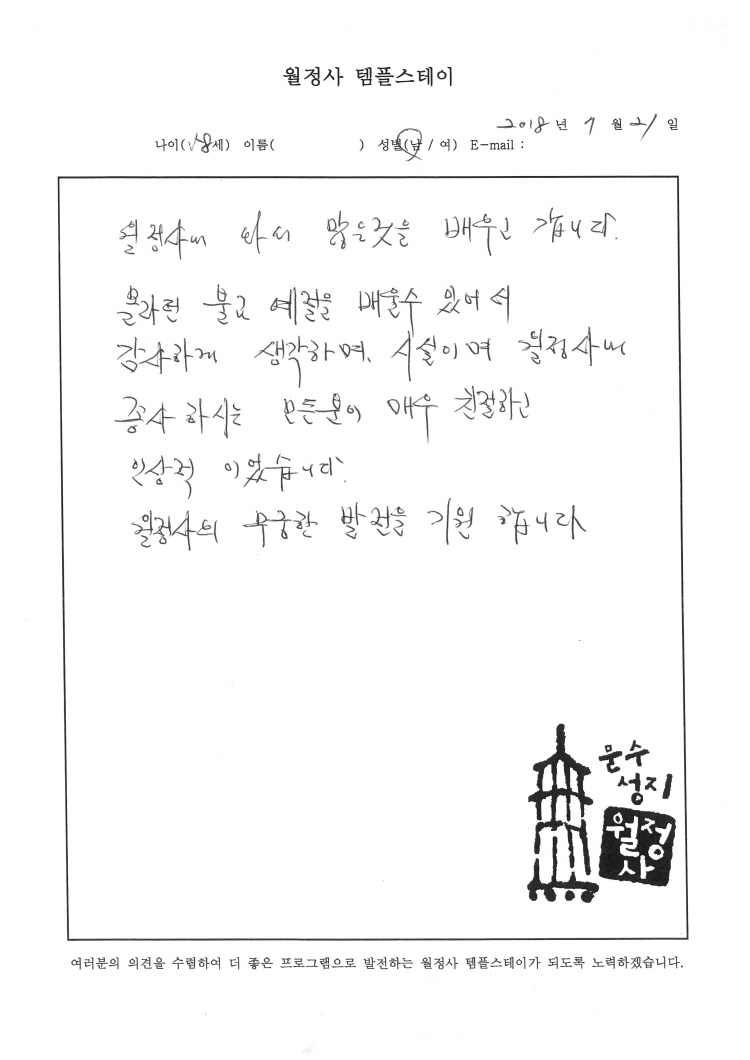 월정사 템플스테이
2018 년 7 월 21 일
나이(58세) 이름( ) 성별(남 / 여) E-mail :
월정사에 와서 많은것을 배우고 갑니다.
몰라던 불교 예절을 배울수 있어서
감사하게 생각하며, 시설이며 월정사에
종사 하시는 모든분이 매우 친절하고
인상적 이었습니다.
월정사의 무궁한 발전을 기원 합니다
문수
성지
월정
사
여러분의 의견을 수렴하여 더 좋은 프로그램으로 발전하는 월정사 템플스테이가 되도록 노력하겠습니다.